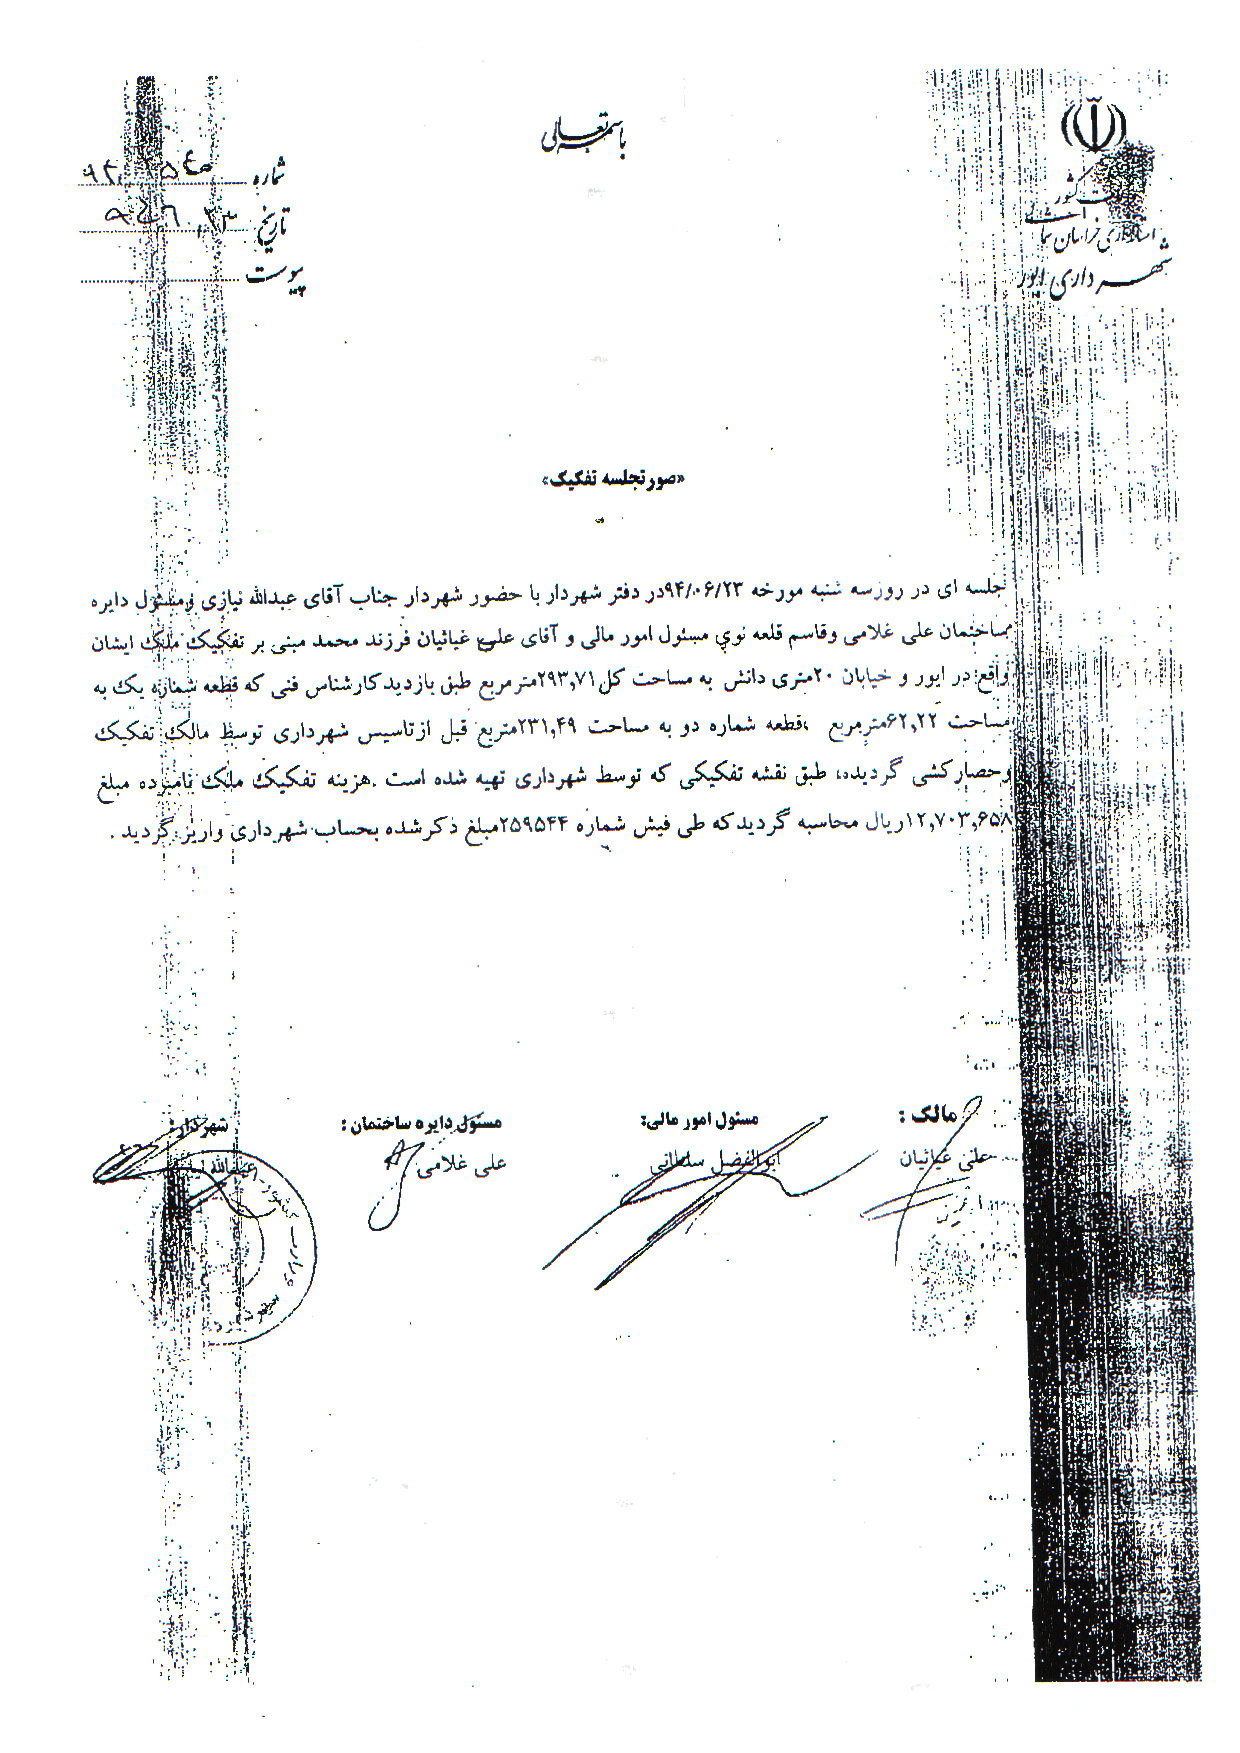 باسمه تعالی
شماره
تاریخ
پیوست
کشور
استانداری خراسان شمالی
شهرداری ایور
«صورتجلسه تفکیک»
جلسه ای در روز سه شنبه مورخه ۹۴/۰۶/۲۳در دفتر شهردار با حضور شهردار جناب آقای عبدالله نیازی ومسئول دایره
ساختمان علی غلامی وقاسم قلعه نوی مسئول امور مالی و آقای علی غیاثیان فرزند محمد مبنی بر تفکیک ملک ایشان
واقع در ایور و خیابان ۲۰متری دانش به مساحت کل۲۹۳,۷۱مترمربع طبق بازدید کارشناس فنی که قطعه شماره یک به
مساحت ۶۲,۲۲مترمربع ،قطعه شماره دو به مساحت ۲۳۱,۴۹متربع قبل ازتاسیس شهرداری توسط مالک تفکیک
وحصارکشی گردیده، طبق نقشه تفکیکی که توسط شهرداری تهیه شده است .هزینه تفکیک ملک نامبرده مبلغ
۱۲,۷۰۳,۶۵۸ریال محاسبه گردید که طی فیش شماره ۲۵۹۵۴۴مبلغ ذکرشده بحساب شهرداری واریز گردید .
مالک :
مسئول امور مالی:
مسئول دایره ساختمان :
شهردار:
علی غیاثیان
ابوالفضل سلطانی
علی غلامی
عبدالله